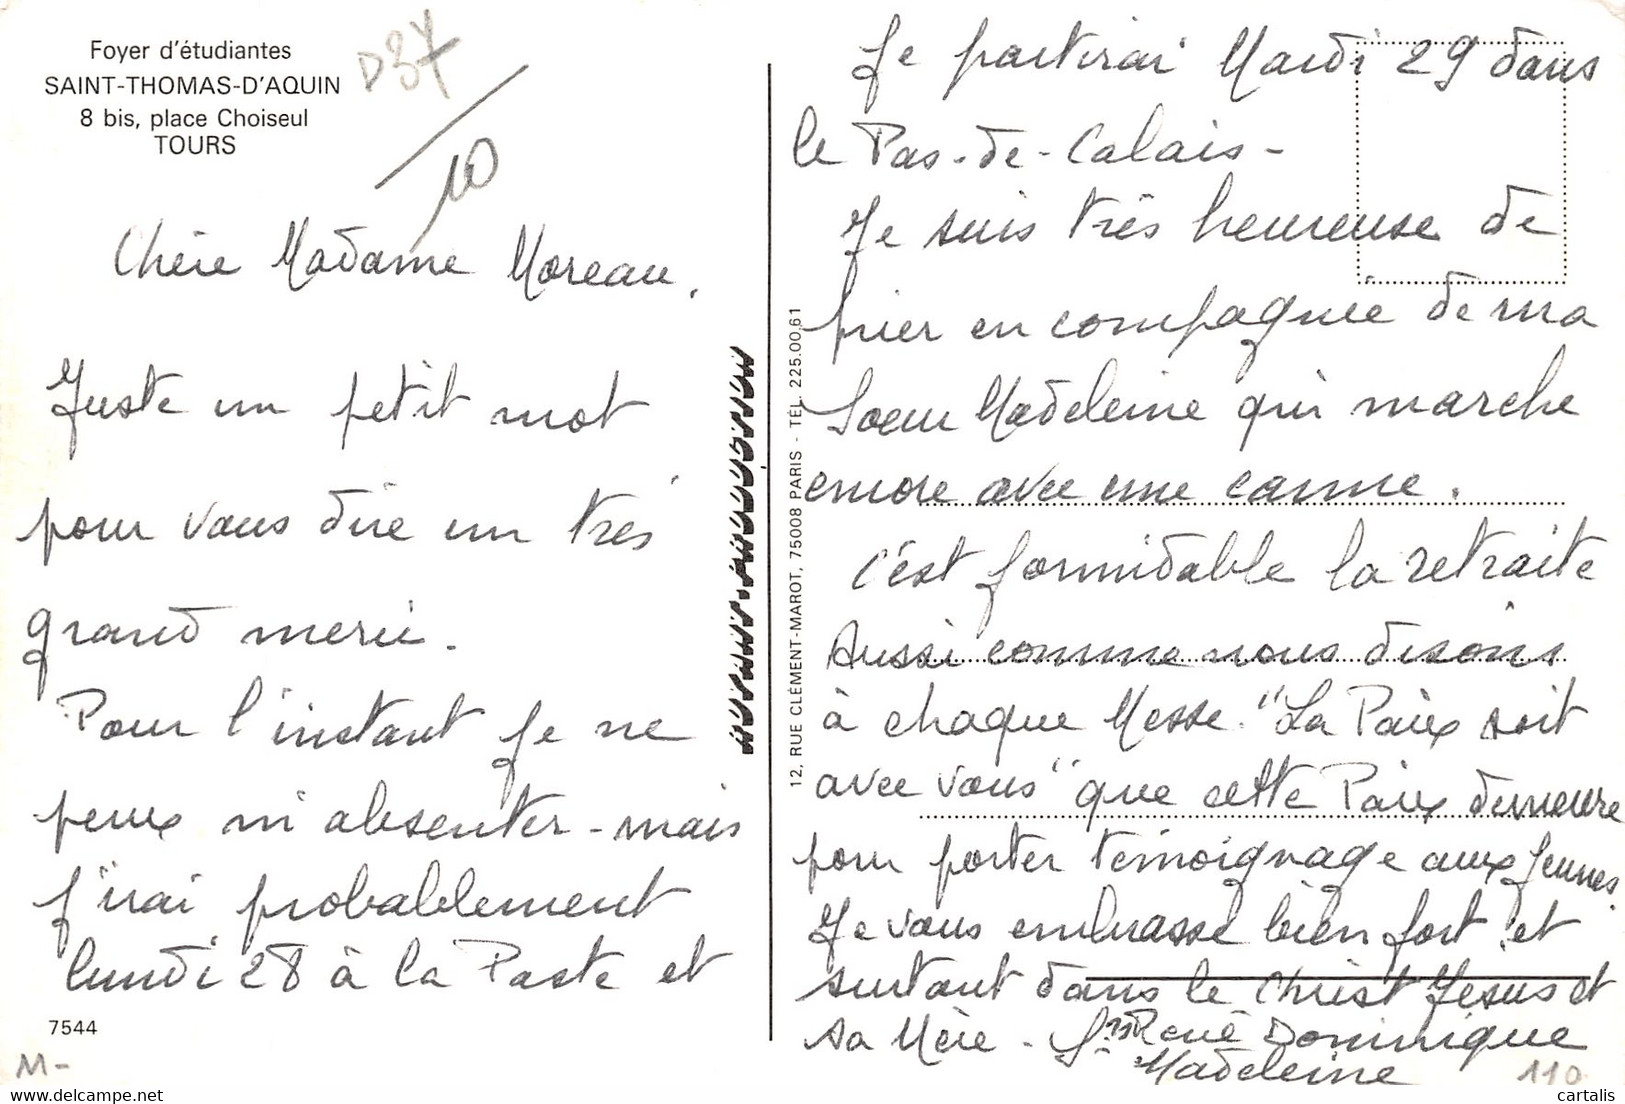 Foyer d'étudiantes
SAINT-THOMAS-D'AQUIN
8 bis, place Choiseul
TOURS
D37
10
Chère Madame Moreau,
Juste un petit mot
pour vous dire un très
grand merci.
Pour l'instant je ne
peux m'absenter - mais
j'irai probablement
lundi 28 à la Poste et
7544
M-
12, RUE CLÉMENT-MAROT, 75008 PARIS - TÉL. 225.00.61
Je partirai Mardi 29 dans
le Pas-de-Calais -
Je suis très heureuse de
prier en compagnie de ma
Soeur Madeleine qui marche
encore avec une canne.
C'est formidable la retraite
Aussi comme nous disons
à chaque Messe "La Paix soit
avec vous" que cette Paix demeure
pour porter témoignage aux Jeunes.
Je vous embrasse bien fort et
surtout dans le Christ Jésus et
sa Mère - Srs René Dominique
Madeleine
110
cartalis